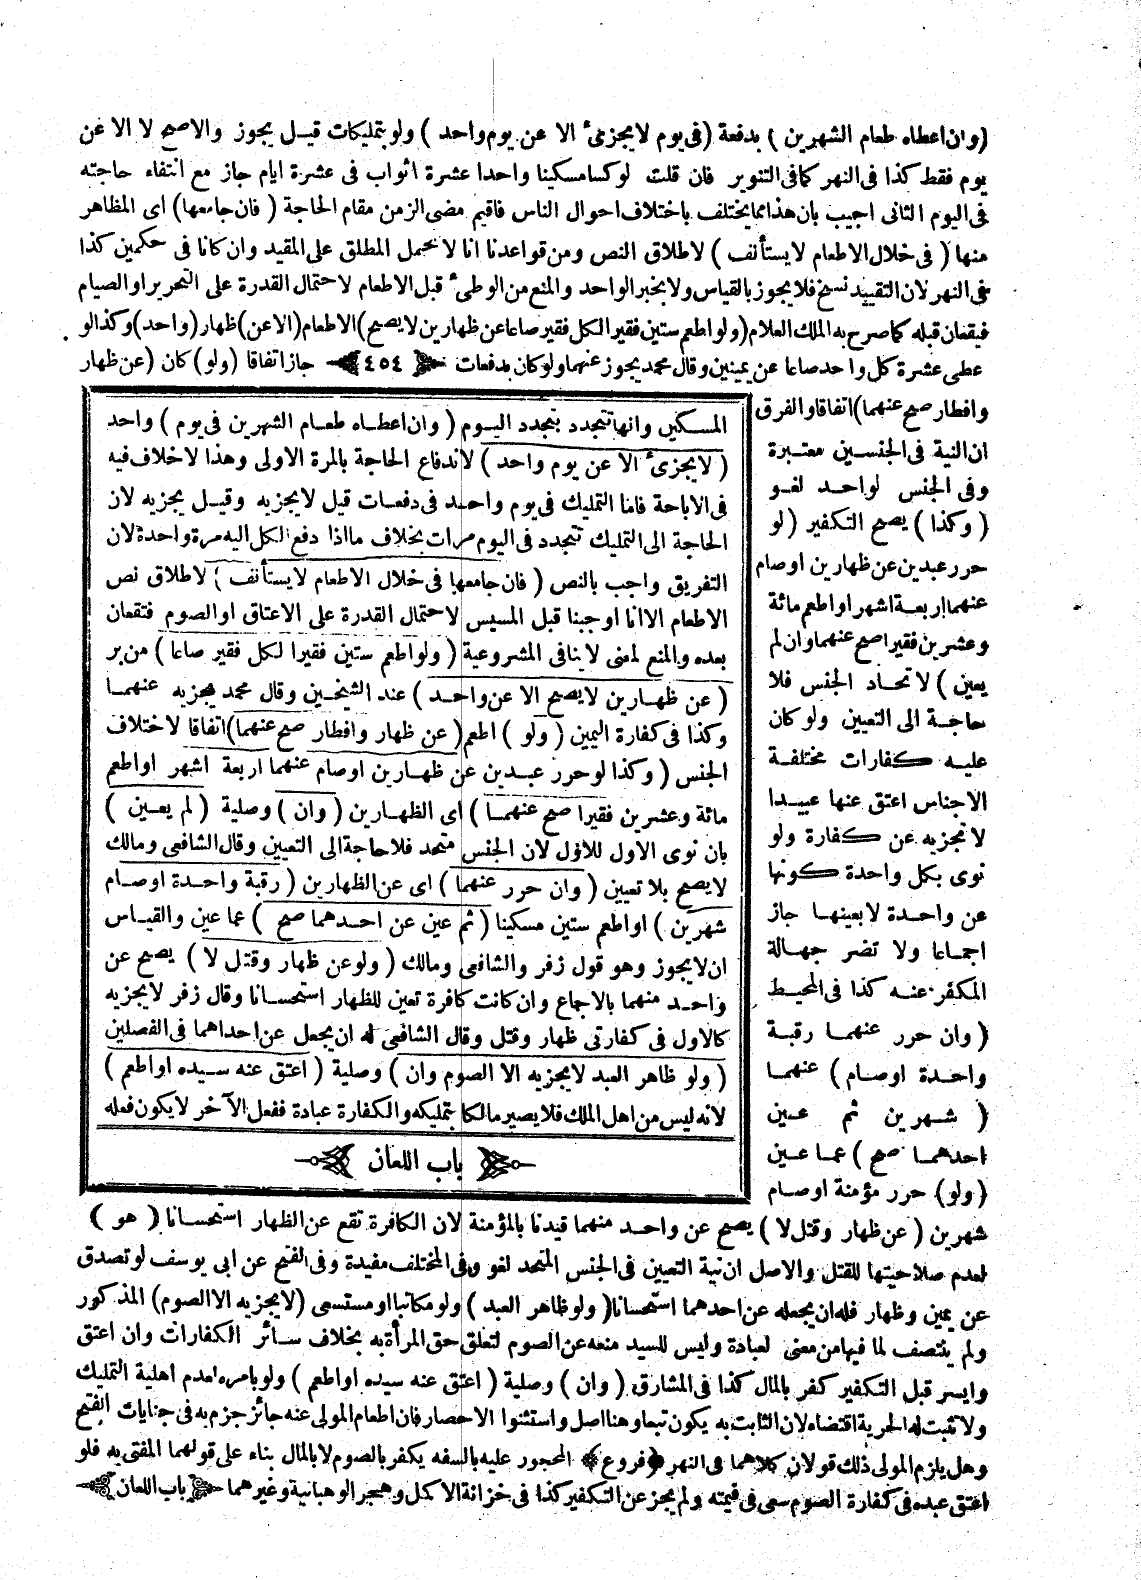 (وان اعطاه طعام الشهرين) بدفعة (فى يوم لا يجزئ الا عن يوم واحد) ولو بتمليكات قيل يجوز والاصح لا الا عن
يوم فقط كذا فى النهر كما فى التنوير فان قلت لو كسا مسكينا واحدا عشرة اثواب فى عشرة ايام جاز مع انتفاء حاجته
فى اليوم الثانى اجيب بان هذا مما يختلف باختلاف احوال الناس فاقيم مضى الزمن مقام الحاجة (فان جامعها) اى المظاهر
منها (فى خلال الاطعام لا يستأنف) لاطلاق النص ومن قواعدنا انا لا نحمل المطلق على المقيد وان كانا فى حكمين كذا
فى النهر لان التقييد نسخ فلا يجوز بالقياس ولا بخبر الواحد والمنع من الوطىء قبل الاطعام لاحتمال القدرة على التحرير او الصيام
فيقعان قبله كما صرح به الملك العلام (ولو اطعم ستين فقيرا لكل فقير صاعا عن ظهارين لا يصح) الاطعام (الا عن) ظهار (واحد) وكذا لو
عطى عشرة كل واحد صاعا عن يمينين وقال محمد يجوز عنهما ولو كان بدفعات ﴿٤٥٤﴾ جاز اتفاقا (ولو) كان (عن ظهار
وافطار صح عنهما) اتفاقا والفرق
ان النية فى الجنسين معتبرة
وفى الجنس لواحد لغو
(وكذا) يصح التكفير (لو
حرر عبدين عن ظهارين او صام
عنهما اربعة اشهر او اطعم مائة
وعشرين فقيرا صح عنهما وان لم
يعين) لاتحاد الجنس فلا
حاجة الى التعيين ولو كان
عليه كفارات مختلفة
الاجناس اعتق عنها عبيدا
لا تجزيه عن كفارة ولو
نوى بكل واحدة كونها
عن واحدة لا بعينها جاز
اجماعا ولا تضر جهالة
المكفر عنه كذا فى المحيط
(وان حرر عنهما رقبة
واحدة او صام) عنهما
(شهرين ثم عين
احدهما صح) عما عين
(ولو) حرر مؤمنة او صام
شهرين (عن ظهار وقتل لا) يصح عن واحد منهما قيدنا بالمؤمنة لان الكافرة تقع عن الظهار استحسانا (هو)
لعدم صلاحيتها للقتل والاصل ان نية التعيين فى الجنس المتحد لغو وفى المختلف مفيدة وفى الفتح عن ابى يوسف لو تصدق
عن يمين وظهار فله ان يجعله عن احدهما استحسانا (ولو ظاهر العبد) ولو مكاتبا او مستسعى (لا يجزيه الا الصوم) المذكور
ولم يتنصف لما فيها من معنى لعبادة وليس للسيد منعه عن الصوم لتعلق حق المرأة به بخلاف سائر الكفارات وان اعتق
وايسر قبل التكفير كفر بالمال كذا فى المشارق (وان) وصلية (اعتق عنه سيده او اطعم) ولو بامره لعدم اهلية التمليك
ولا تثبت له الحرية اقتضاء لان الثابت به يكون تبعا وهنا اصل واستثنوا الاحصار فان اطعام المولى عنه جائز جزم به فى جنايات الفتح
وهل يلزم المولى ذلك قولان كلاهما فى النهر ﴿فروع﴾ المحجور عليه بالسفه يكفر بالصوم لا بالمال بناء على قولهما المفتى به فلو
اعتق عبده فى كفارة الصوم سعى فى قيمته ولم يجز عن التكفير كذا فى خزانة الاكمل وحجر الوهبانية وغيرهما ﴿باب اللعان﴾
المسكين وانها تتجدد بتجدد اليوم (وان اعطاه طعام الشهرين فى يوم) واحد
(لا يجزئ الا عن يوم واحد) لاندفاع الحاجة بالمرة الاولى وهذا لا خلاف فيه
فى الاباحة فاما التمليك فى يوم واحد فى دفعات قيل لا يجزيه وقيل يجزيه لان
الحاجة الى التمليك تتجدد فى اليوم مرات بخلاف ما اذا دفع الكل اليه مرة واحدة لان
التفريق واجب بالنص (فان جامعها فى خلال الاطعام لا يستأنف) لاطلاق نص
الاطعام الا انا اوجبنا قبل المسيس لاحتمال القدرة على الاعتاق او الصوم فتقعان
بعده والمنع لمعنى لا ينافى المشروعية (ولو اطعم ستين فقيرا لكل فقير صاعا) من بر
(عن ظهارين لا يصح الا عن واحد) عند الشيخين وقال محمد يجزيه عنهما
وكذا فى كفارة اليمين (ولو) اطعم (عن ظهار وافطار صح عنهما) اتفاقا لاختلاف
الجنس (وكذا لو حرر عبدين عن ظهارين او صام عنهما اربعة اشهر او اطعم
مائة وعشرين فقيرا صح عنهما) اى الظهارين (وان) وصلية (لم يعين)
بان نوى الاول للاول لان الجنس متحد فلا حاجة الى التعيين وقال الشافعى ومالك
لا يصح بلا تعيين (وان حرر عنهما) اى عن الظهارين (رقبة واحدة او صام
شهرين) او اطعم ستين مسكينا (ثم عين عن احدهما صح) عما عين والقياس
ان لا يجوز وهو قول زفر والشافعى ومالك (ولو عن ظهار وقتل لا) يصح عن
واحد منهما بالاجماع وان كانت كافرة تعين للظهار استحسانا وقال زفر لا يجزيه
كالاول فى كفارتى ظهار وقتل وقال الشافعى له ان يجعل عن احداهما فى الفصلين
(ولو ظاهر العبد لا يجزيه الا الصوم وان) وصلية (اعتق عنه سيده او اطعم)
لانه ليس من اهل الملك فلا يصير مالكا بتمليكه والكفارة عبادة ففعل الآخر لا يكون فعله
﴿باب اللعان﴾